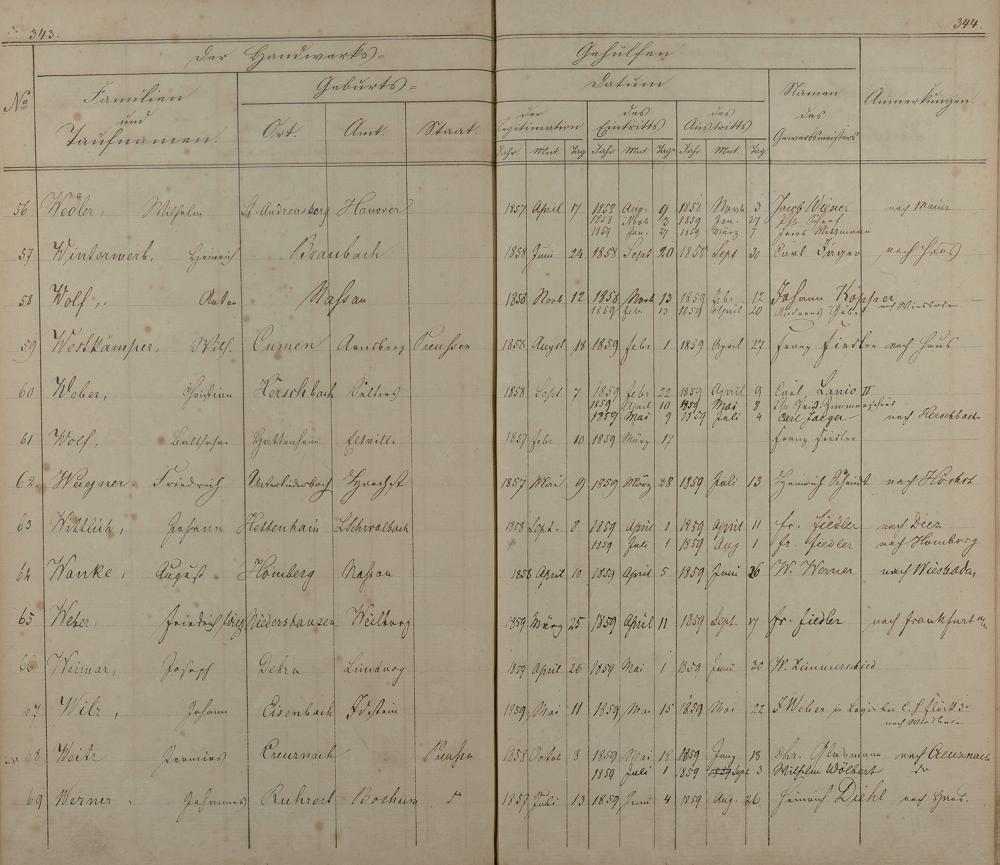 343. 344.
Der Handwerks= Gehülfen
No Familien und Taufnamen. Geburts= Datum Namen des Gewerbsmeisters Anmerkungen.
Ort. Amt. Staat. der Legitimation des Eintritts des Austritts
Jahr. Mnt. Tag Jahr Mnt Tag Jahr Mnt Tag
56 Wedler, Wilhelm St. Andreasberg Hanover 1857 April 17 1858 Aug. 9 1858 Novb 3 Jacob Wiener nach Mainz
1858 Novb 3 1859 Jan. 27
1859 Jan. 27 1859 März 7 Jacob
57 Winterwerb, Heinrich Braubach 1858 Juni 24 1858 Sept 20 1858 Sept 30 Carl Jäger nach Haus
58 Wolf, Anton Nassau 1858 Novb 12 1858 Novb 13 1859 febr 12 Johann
1859 febr 13 1859 April 20 Andreas nach Wiesbaden
59 Westkämper, Wilh. Arnsberg Preußen 1858 Augst 18 1859 febr 1 1859 April 27 Franz Fiedler nach Haus
60 Weber, Christian Herschbach Selters 1858 Sept 7 1859 febr 22 1859 April 9 Carl Lanio II
1859 April 10 1859 Mai 8
1859 Mai 9 1859 Juli 4 Carl Jaeger nach Herschbach
61 Wolf, Balthasar Hattenheim Eltville 1857 febr 10 1859 März 17 Franz Fiedler
62 Wagner Friedrich Unterliederbach Hoechst 1857 Mai 9 1859 März 28 1859 Juli 13 Heinrich Scheidt nach Höchst
63 Wittlich, Johann Hettenhain LSchwalbach 1858 Sept. 8 1859 April 1 1859 April 11 fr. Fiedler nach Diez
1859 Juli 1 1859 Aug 1 fr. Fiedler nach Homberg
64 Wanke, August Homberg Nassau 1858 April 10 1859 April 5 1859 Juni 26 W. Werner nach Wiesbaden
65 Weber, Friedrich Niedershausen Weilburg 1859 März 25 1859 April 11 1859 Sept. 17 fr. Fiedler nach Frankfurt
66 Weimar, Joseph Dehrn Limburg 1859 April 26 1859 Mai 1 1859 Juni 30 W. Zimmerschied
67 Wilz, Johann Eisenbach Idstein 1859 Mai 11 1859 Mai 15 1859 Mai 22 J Weber
68 Weitz Creuznach Preußen 1858 Octob 8 1859 Mai 18 1859 Juny 18 Chr. Glasmann nach Creuznach
1859 Juli 1 1859 Sept 3 Wilhelm Wölbert do
69 Werner Johannes Ruhrort Bochum do 1857 Juli 13 1859 Juni 4 1859 Aug. 26 Heinrich Diehl nach Haus.